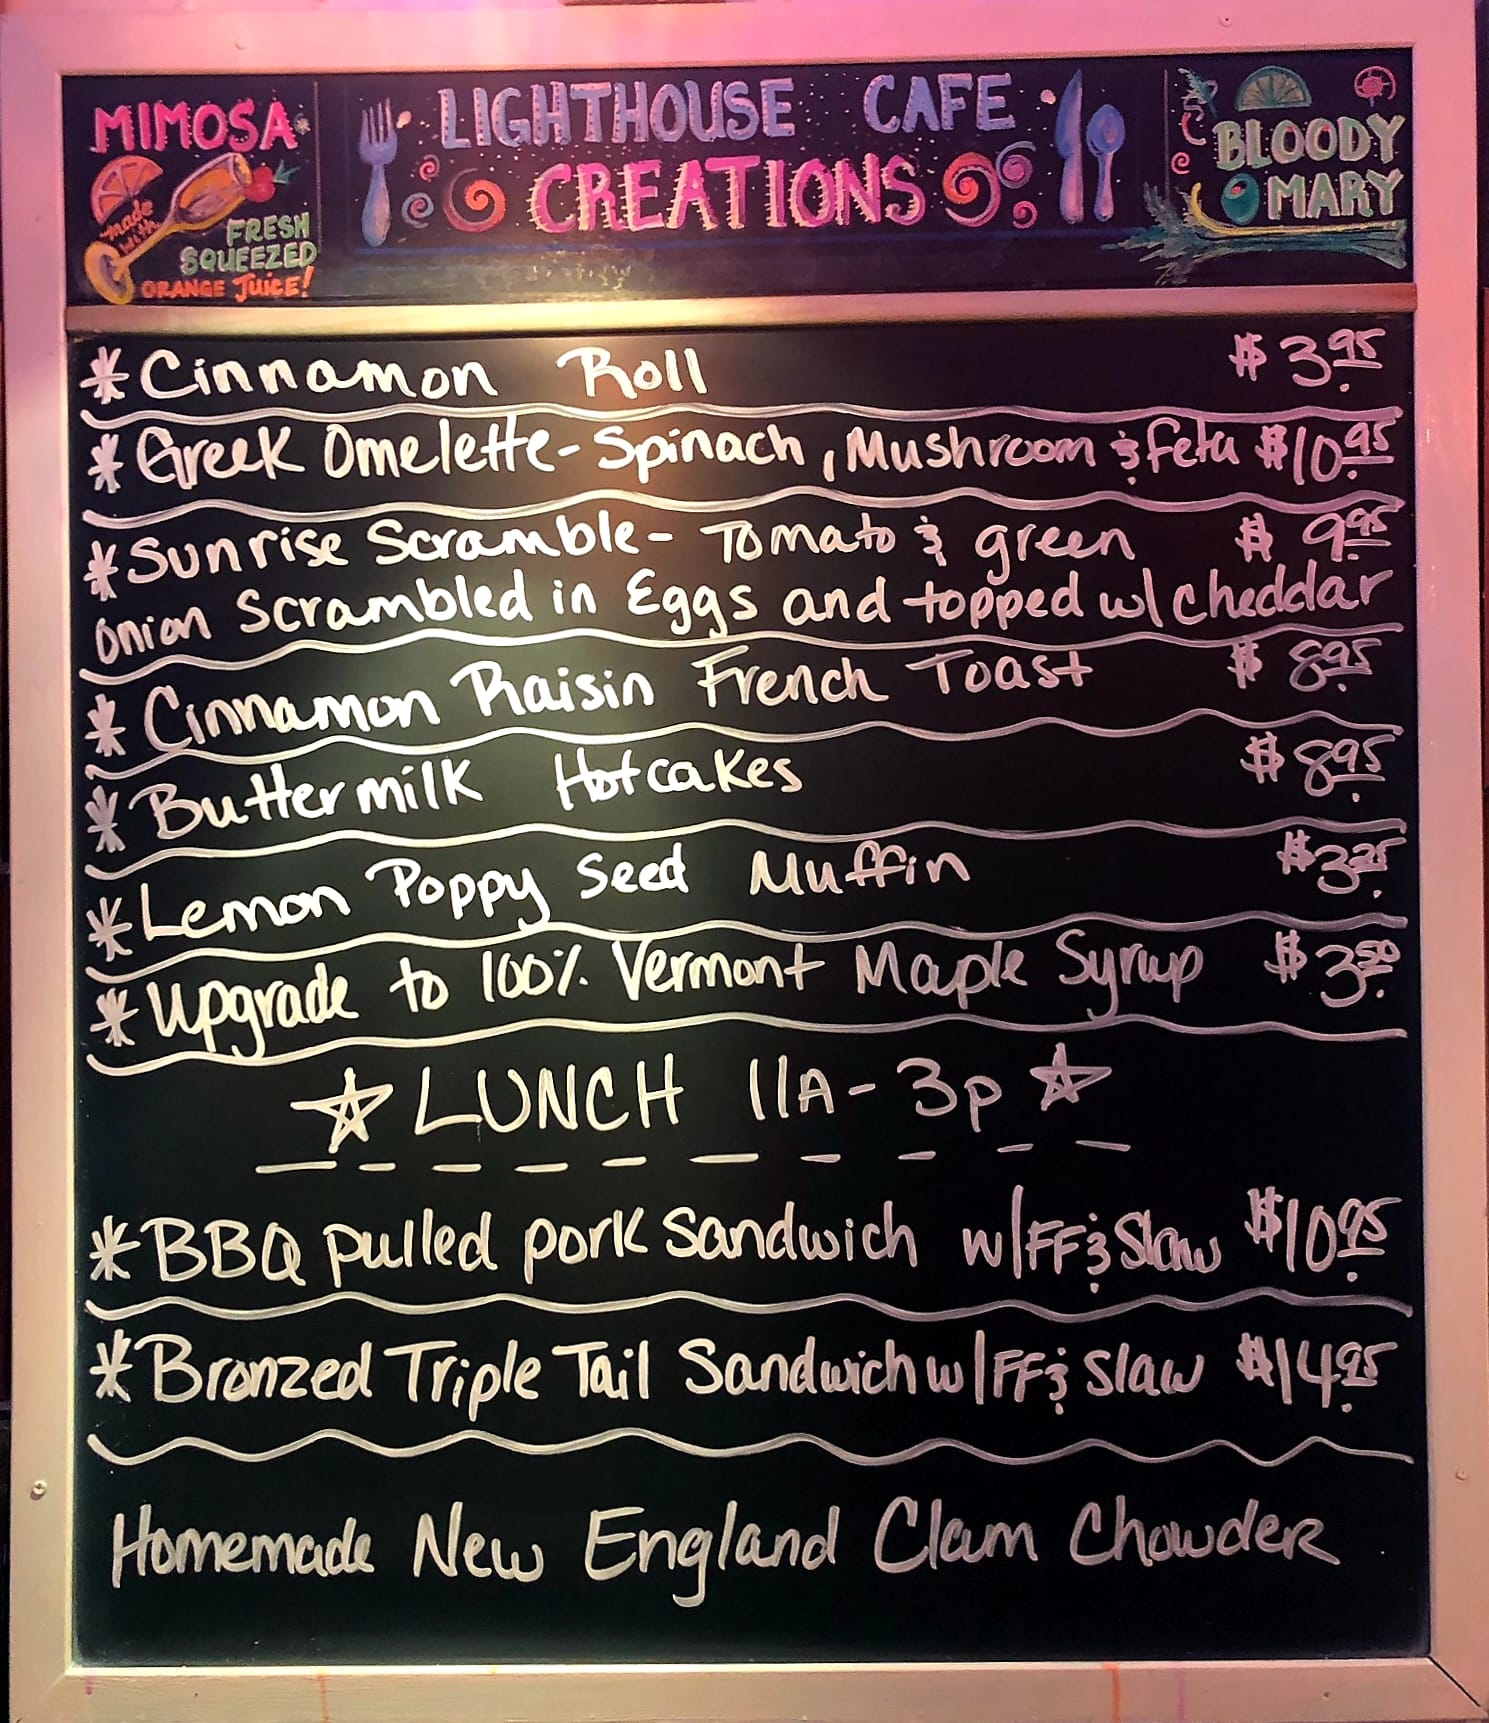 MIMOSA
made
with
FRESH
SQUEEZED
ORANGE JUICE!
LIGHTHOUSE CAFE
CREATIONS
BLOODY
MARY
* Cinnamon Roll $3.95
* Greek Omelette - Spinach, Mushroom & feta $10.95
* Sunrise Scramble - Tomato & green $9.95
onion Scrambled in Eggs and topped w/ cheddar
* Cinnamon Raisin French Toast $8.95
* Buttermilk Hotcakes $8.95
* Lemon Poppy Seed Muffin $3.25
* Upgrade to 100% Vermont Maple Syrup $3.50
☆ LUNCH 11A - 3p ☆
* BBQ pulled pork Sandwich w/ FF & Slaw $10.95
* Bronzed Triple Tail Sandwich w/ FF & Slaw $14.95
Homemade New England Clam Chowder